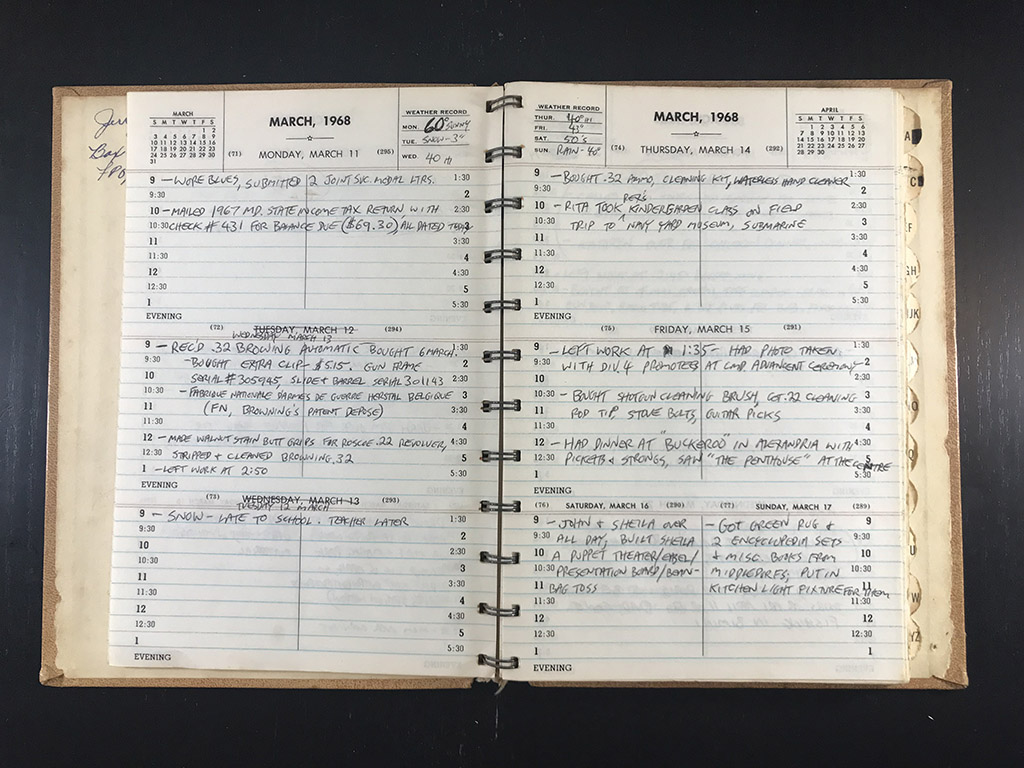 MARCH
S M T W T F S
1 2
3 4 5 6 7 8 9
10 11 12 13 14 15 16
17 18 19 20 21 22 23
24 25 26 27 28 29 30
31
MARCH, 1968
WEATHER RECORD
MON. 60° SUNNY
TUE. SNOW - 3"
WED. 40
(71) MONDAY, MARCH 11 (295)
9 - WORE BLUES, SUBMITTED 2 JOINT SVC. MEDAL LTRS. 1:30
9:30 2
10 - MAILED 1967 MD. STATE INCOME TAX RETURN WITH 2:30
10:30 CHECK # 431 FOR BALANCE DUE ($69.30), ALL DATED TODAY 3
11 3:30
11:30 4
12 4:30
12:30 5
1 5:30
EVENING
(72) TUESDAY, MARCH 12 (294)
WEDNESDAY MARCH 13
9 - REC'D .32 BROWING AUTOMATIC BOUGHT 6 MARCH. 1:30
9:30 - BOUGHT EXTRA CLIP - $5.15. GUN FRAME 2
10 SERIAL # 305945, SLIDE & BARREL SERIAL 301143 2:30
10:30 - FABRIQUE NATIONALE D'ARMES DE GUERRE HERSTAL BELGIQUE 3
11 (FN, BROWNING'S PATENT DEPOSE) 3:30
11:30 4
12 - MADE WALNUT STAIN BUTT GRIPS FOR ROSCOE .22 REVOLVER, 4:30
12:30 STRIPPED & CLEANED BROWNING .32 5
1 - LEFT WORK AT 2:50 5:30
EVENING
(73) WEDNESDAY, MARCH 13 (293)
TUESDAY 12 MARCH
9 - SNOW - LATE TO SCHOOL. TEACHER LATER 1:30
9:30 2
10 2:30
10:30 3
11 3:30
11:30 4
12 4:30
12:30 5
1 5:30
EVENING
WEATHER RECORD
THUR. 40°
FRI. 43°
SAT. 50's
SUN. RAIN - 40°
MARCH, 1968
APRIL
S M T W T F S
1 2 3 4 5 6
7 8 9 10 11 12 13
14 15 16 17 18 19 20
21 22 23 24 25 26 27
28 29 30
(74) THURSDAY, MARCH 14 (292)
9 - BOUGHT .32 AMMO, CLEANING KIT, WATERLESS HAND CLEANER 1:30
9:30 2
10 - RITA TOOK PER'S KINDERGARDEN CLASS ON FIELD 2:30
10:30 TRIP TO NAVY YARD MUSEUM, SUBMARINE 3
11 3:30
11:30 4
12 4:30
12:30 5
1 5:30
EVENING
(75) FRIDAY, MARCH 15 (291)
9 - LEFT WORK AT 1:35 - HAD PHOTO TAKEN 1:30
9:30 WITH DIV/4 PROMOTERS AT CMD ADVANCEMENT CEREMONY 2
10 2:30
10:30 - BOUGHT SHOTGUN CLEANING BRUSH, CGT. 22 CLEANING 3
11 ROD TIP, STOVE BOLTS, GUITAR PICKS 3:30
11:30 4
12 - HAD DINNER AT "BUCKEROO" IN ALEXANDRIA WITH 4:30
12:30 PICKETTS & STRONGS, SAW "THE PENTHOUSE" AT THE CENTRE 5
1 5:30
EVENING
(76) SATURDAY, MARCH 16 (290) (77) SUNDAY, MARCH 17 (289)
9 - JOHN & SHEILA OVER - GOT GREEN RUG & 9
9:30 ALL DAY, BUILT SHEILA 2 ENCYCLOPEDIA SETS 9:30
10 A PUPPET THEATER/EASEL/ & MISC. BOOKS FROM 10
10:30 PRESENTATION BOARD/BEAN- MIDDLEDORFS; PUT IN 10:30
11 BAG TOSS KITCHEN LIGHT FIXTURE FOR THEM 11
11:30 11:30
12 12
12:30 12:30
1 1
EVENING
A
C
EF
GH
IJK
U
W
YZ